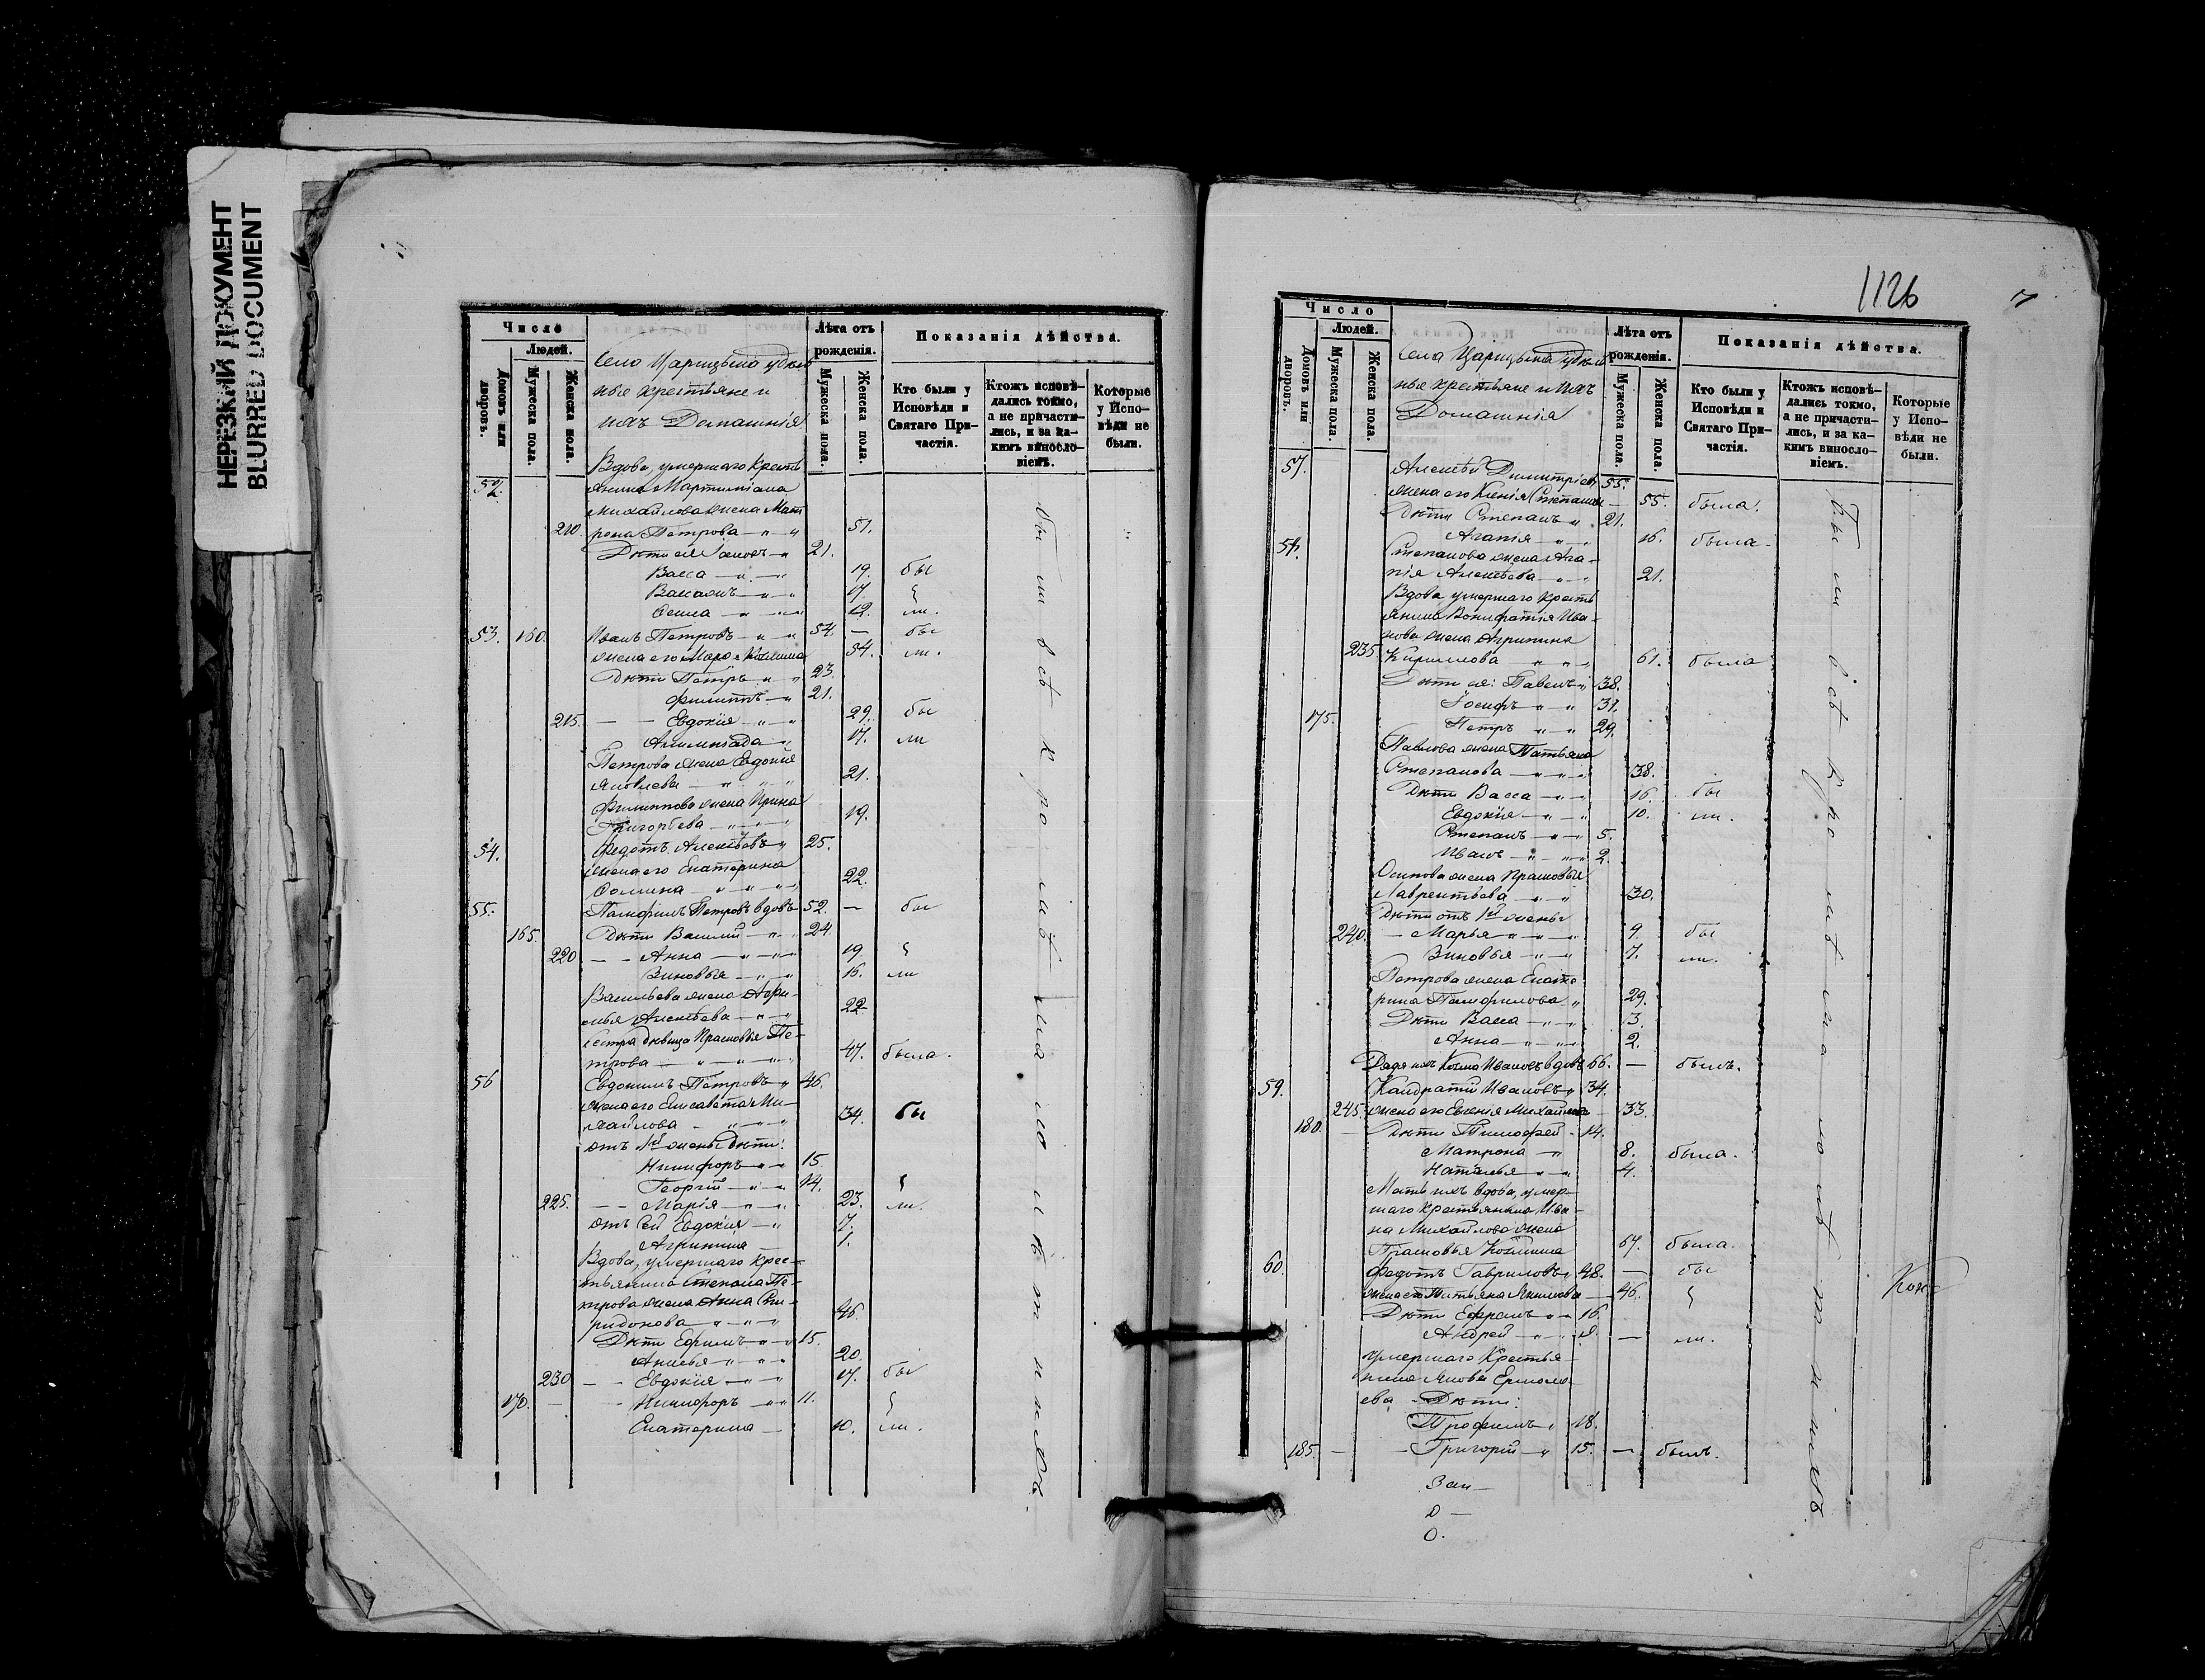 НЕРЕЗКИЙ ДОКУМЕНТ
BLURRED DOCUMENT
Число
Людей.
Домовъ или дворовъ.
Мужеска пола.
Женска пола.
Села Царицына удѣль
ные крестьяне и
ихъ Домашнія
Лѣта отъ рожденія.
Мужеска пола.
Женска пола.
Показанія дѣйства.
Кто были у Исповѣди и Святаго Причастія.
Ктожъ исповѣ-
дались токмо,
а не причасти-
лись, и за ка-
кимъ винословіемъ.
Которые
у Испо-
вѣди не
были.
52. Вдова, умершаго Кресть
янина Мартиніана
Михайлова жена Мат
210. рена Петрова 51.
Дѣти ея 21.
Васса 19. бы
17.
12. ли.
53. 160. Иванъ Петровъ 54. — бы
жена его Козмина 54. ли.
Дѣти Петръ 23.
Филиппъ 21.
215. — — Евдокія 29. бы
17. ли
Петрова жена Евдокія
Яковлева 21.
Филиппова жена Ирина
Григорьева 19.
54. Федотъ Алексѣевъ 25.
жена его Екатерина
Фомина 22.
55. Памфилъ Петровъ вдовъ 52. — бы
165. Дѣти Василій 24.
220 — — Анна 19
Зиновья 16. ли
Васильева жена
Алексѣева 22.
Сестра дѣвица Прасковья Пе-
трова 47. была.
56 Евдокимъ Петровъ 46.
жена его Елисавета Ми-
хайлова 34. бы
отъ 1й жены дѣти:
Никифоръ 15
Георгій 14.
225. — — Марія 23. ли.
отъ сей Евдокія 7.
1.
Вдова, умершаго крес-
тьянина Степана Пе-
трова жена Анна Спи-
ридонова 46.
Дѣти Ефимъ 15.
20.
230 — — Евдокія 17. бы
170. — — Никифоръ 11.
Екатерина — 10. ли.
бы ли всѣ кромѣ малолѣтнихъ.
1126
Число
Людей.
Домовъ или дворовъ.
Мужеска пола.
Женска пола.
Села Царицына удѣль
ные крестьяне и ихъ
Домашнія
Лѣта отъ рожденія.
Мужеска пола.
Женска пола.
Показанія дѣйства.
Кто были у
Исповѣди и
Святаго При-
частія.
Ктожъ исповѣ-
дались токмо,
а не причасти-
лись, и за ка-
кимъ винословіемъ.
Которые
у Испо-
вѣди не
были.
57. Алексѣй Димитріевъ 55.
жена его Ксенія Степанова — 55. была.
Дѣти Степанъ 21.
Агапія 16. была.
58. Степанова жена Ага-
пія Алексѣева 21.
Вдова умершаго кресть
янина Вонифатія Ива-
нова жена Агрипина
235. Кирилова 61. была
Дѣти ея: Павелъ 38.
Іосифъ 31.
175. Петръ 29.
Павлова жена Татьяна
Степанова 38.
Дѣти Васса 16. бы
Евдокія 10. ли.
Степанъ 5.
Иванъ 2.
Осипова жена Прасковья
Лаврентьева 30.
Дѣти отъ 1й жены
240. — Марья 9. бы
Зиновья 7. ли.
Петрова жена Екате
рина Памфилова 29.
Дѣти Васса 3.
Анна 2.
Дядя ихъ Козма Ивановъ вдовъ 66. — былъ.
59. Кондратій Ивановъ 34.
245. жена его Евгенія Михайлова — 33.
180. Дѣти Тимофей 14.
Матрона 8. была.
Наталья 4.
Мать ихъ вдова, умер-
шаго Крестьянина Ива-
на Михайлова жена
Прасковья Козмина 67. была.
60. Федотъ Гавриловъ 48. — бы
жена его Татьяна Якимова — 46.
Дѣти Ефремъ 16.
Андрей — ли.
умершаго Крестья-
нина Якова Ермола-
ева Дѣти:
Трофимъ 18.
185. — — Григорій 15. — былъ.
бы ли всѣ кромѣ малолѣтнихъ.